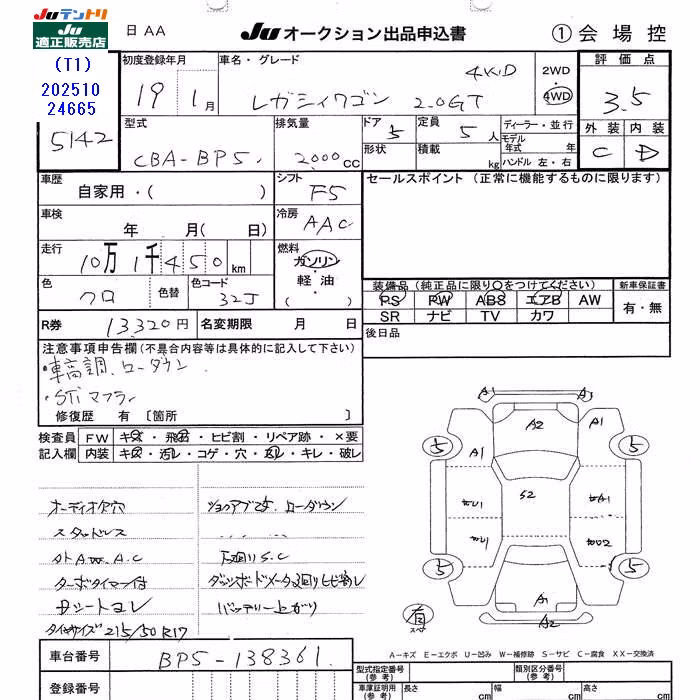 Juテントリ
Ju
適正販売店
日 AA
Ju オークション出品申込書
① 会場控
(T1)
202510
24665
5142
初度登録年月
19 1月
車名・グレード
4WD
レガシィワゴン 2.0GT
2WD
4WD
評価点
3.5
外装 内装
C D
型式
CBA-BP5
排気量
2000cc
ドア 5
形状
定員 5人
積載 kg
ディーラー・並行
モデル年式 年
ハンドル 左・右
車歴
自家用・( )
シフト
F5
セールスポイント (正常に機能するものに限ります)
車検
年 月( 日)
冷房
AAC
走行
10万1千450km
燃料
ガソリン
軽油
( )
色
クロ
色替
色コード
32J
装備品 (純正品に限り○をつけてください)
新車保証書
PS PW ABS エアB AW
有・無
SR ナビ TV カワ
R券 13320円
名変期限 月 日
後日品
注意事項申告欄(不具合内容等は具体的に記入して下さい)
・車高調.ローダウン
・STiマフラー
修復歴 有 〔箇所 〕
検査員記入欄
FW キズ・飛石・ヒビ割・リペア跡・×要
内装 キズ・汚レ・コゲ・穴・返レ・キレ・破レ
オーディオ欠穴
スタッドレス
外AW.A.C
ターボタイマー付
Dシートヨレ
タイヤサイズ215/50R17
ローダウン
下廻りS.C
バッテリー上がり
A1
A2
A1
A1
5
5
S2
5
5
A1
有
スペア
A2
A=キズ E=エクボ U=凹み W=補修跡 S=サビ C=腐食 XX=交換済
車台番号 BP5-138361
登録番号
型式指定番号
類別区分番号
車庫証明用(参考)
長さ cm
幅(参考) cm
高さ cm